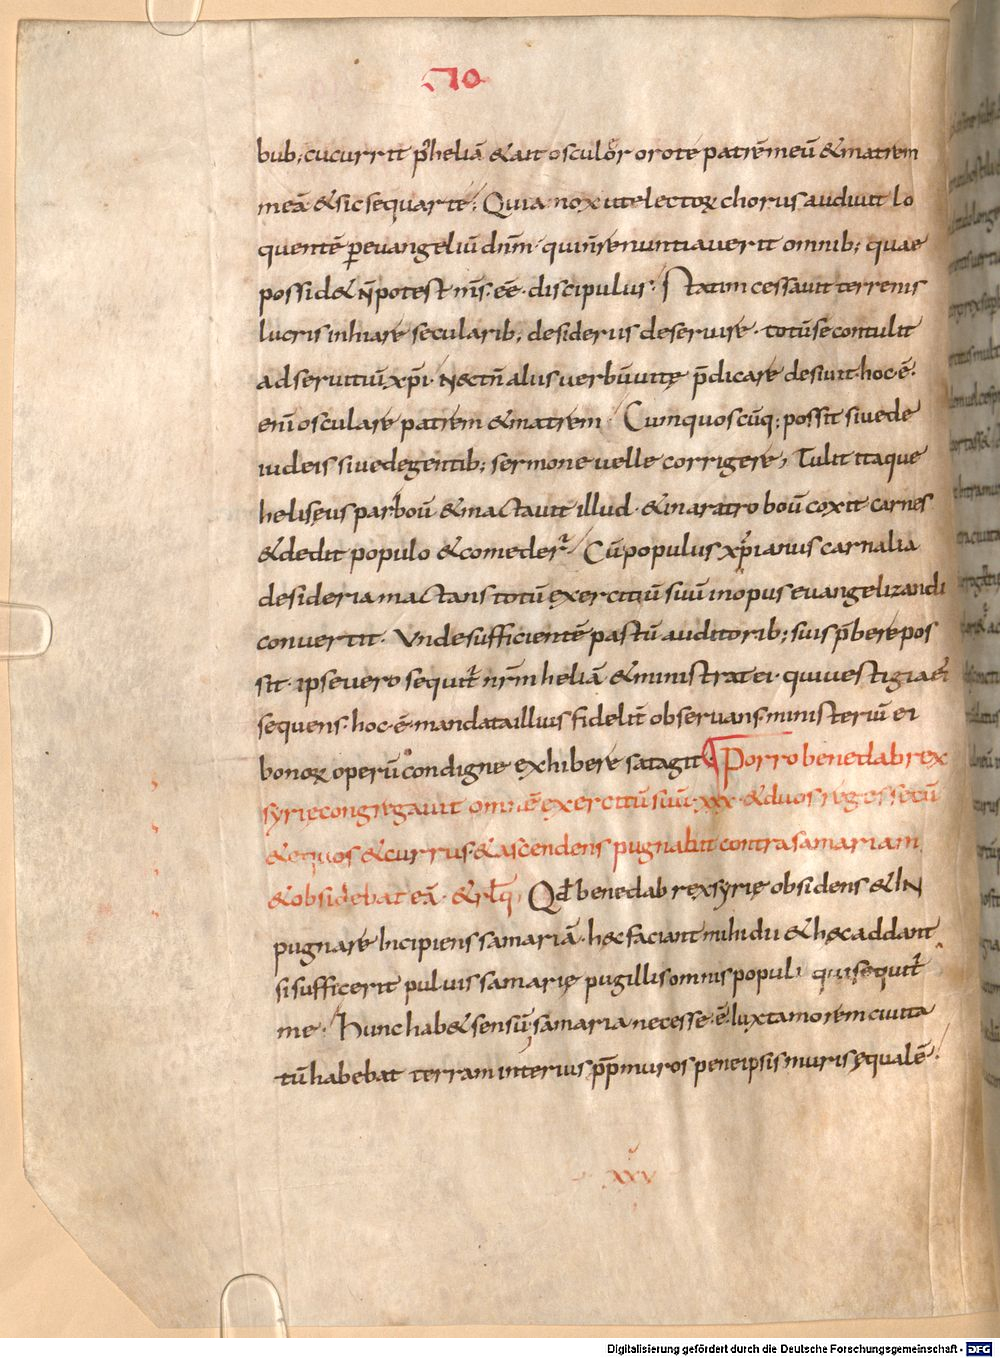 bub; cucurrit p̄ heliā & ait osculor oro te patrē meū & matrem
meā & sic sequar te; Quia nox ut electoꝝ chorus audiuit lo
quentē ꝑ euangeliū dn̄m· qui n̄ renuntiauerit omnib; quae
possid& n̄ potest m̄s· eē· discipulus· Statim cessauit terrenis
lucris inhiare secularib; desideriis deseruire· totū se contulit
ad seruitiū xp̄i· nec tn̄ alus uerbū uitę p̄dicare desiuit· hoc· ē·
enī osculare patrem & matrem· Cum quoscūq; possit siue de
iudeis siue de gentib; sermone uelle corrigere; Tulit itaque
heliseus par boū & mactauit illud· & in aratro boū coxit carnes
& dedit populo & comeder̄· Cū populus xp̄ianus carnalia
desideria mactans totū exercitiū suū in opus euangelizandi
conuertit· Unde sufficientē pastū auditorib; suis p̄bere pos
sit· ipse uero sequit̄ nr̄m heliā & ministrat ei· qui uestigia ei'
sequens· hoc· ē· mandata illius fidelit̄ obseruans· ministeriū ei
bonoꝝ operū condigne exhibere satagit· Porro benedab rex
syrię congregauit omnē exercitū suū· xxx· & duos reges secū
& equos & currus· & ascendens pugnabat contra samariam
& obsidebat eā· & rłq· Qd̄ benedab rex syrię obsidens & in
pugnare incipiens samariā· hęc faciant mihi dii & hęc addant
si sufficerit puluis samarię pugillis omnis populi qui sequit̄
me· Hunc hab& sensū; samaria necesse· ē· iuxta morem ciuita
tū habebat terram interius ꝓp̄ muros pene ipsis muris ęqualē·
xxv